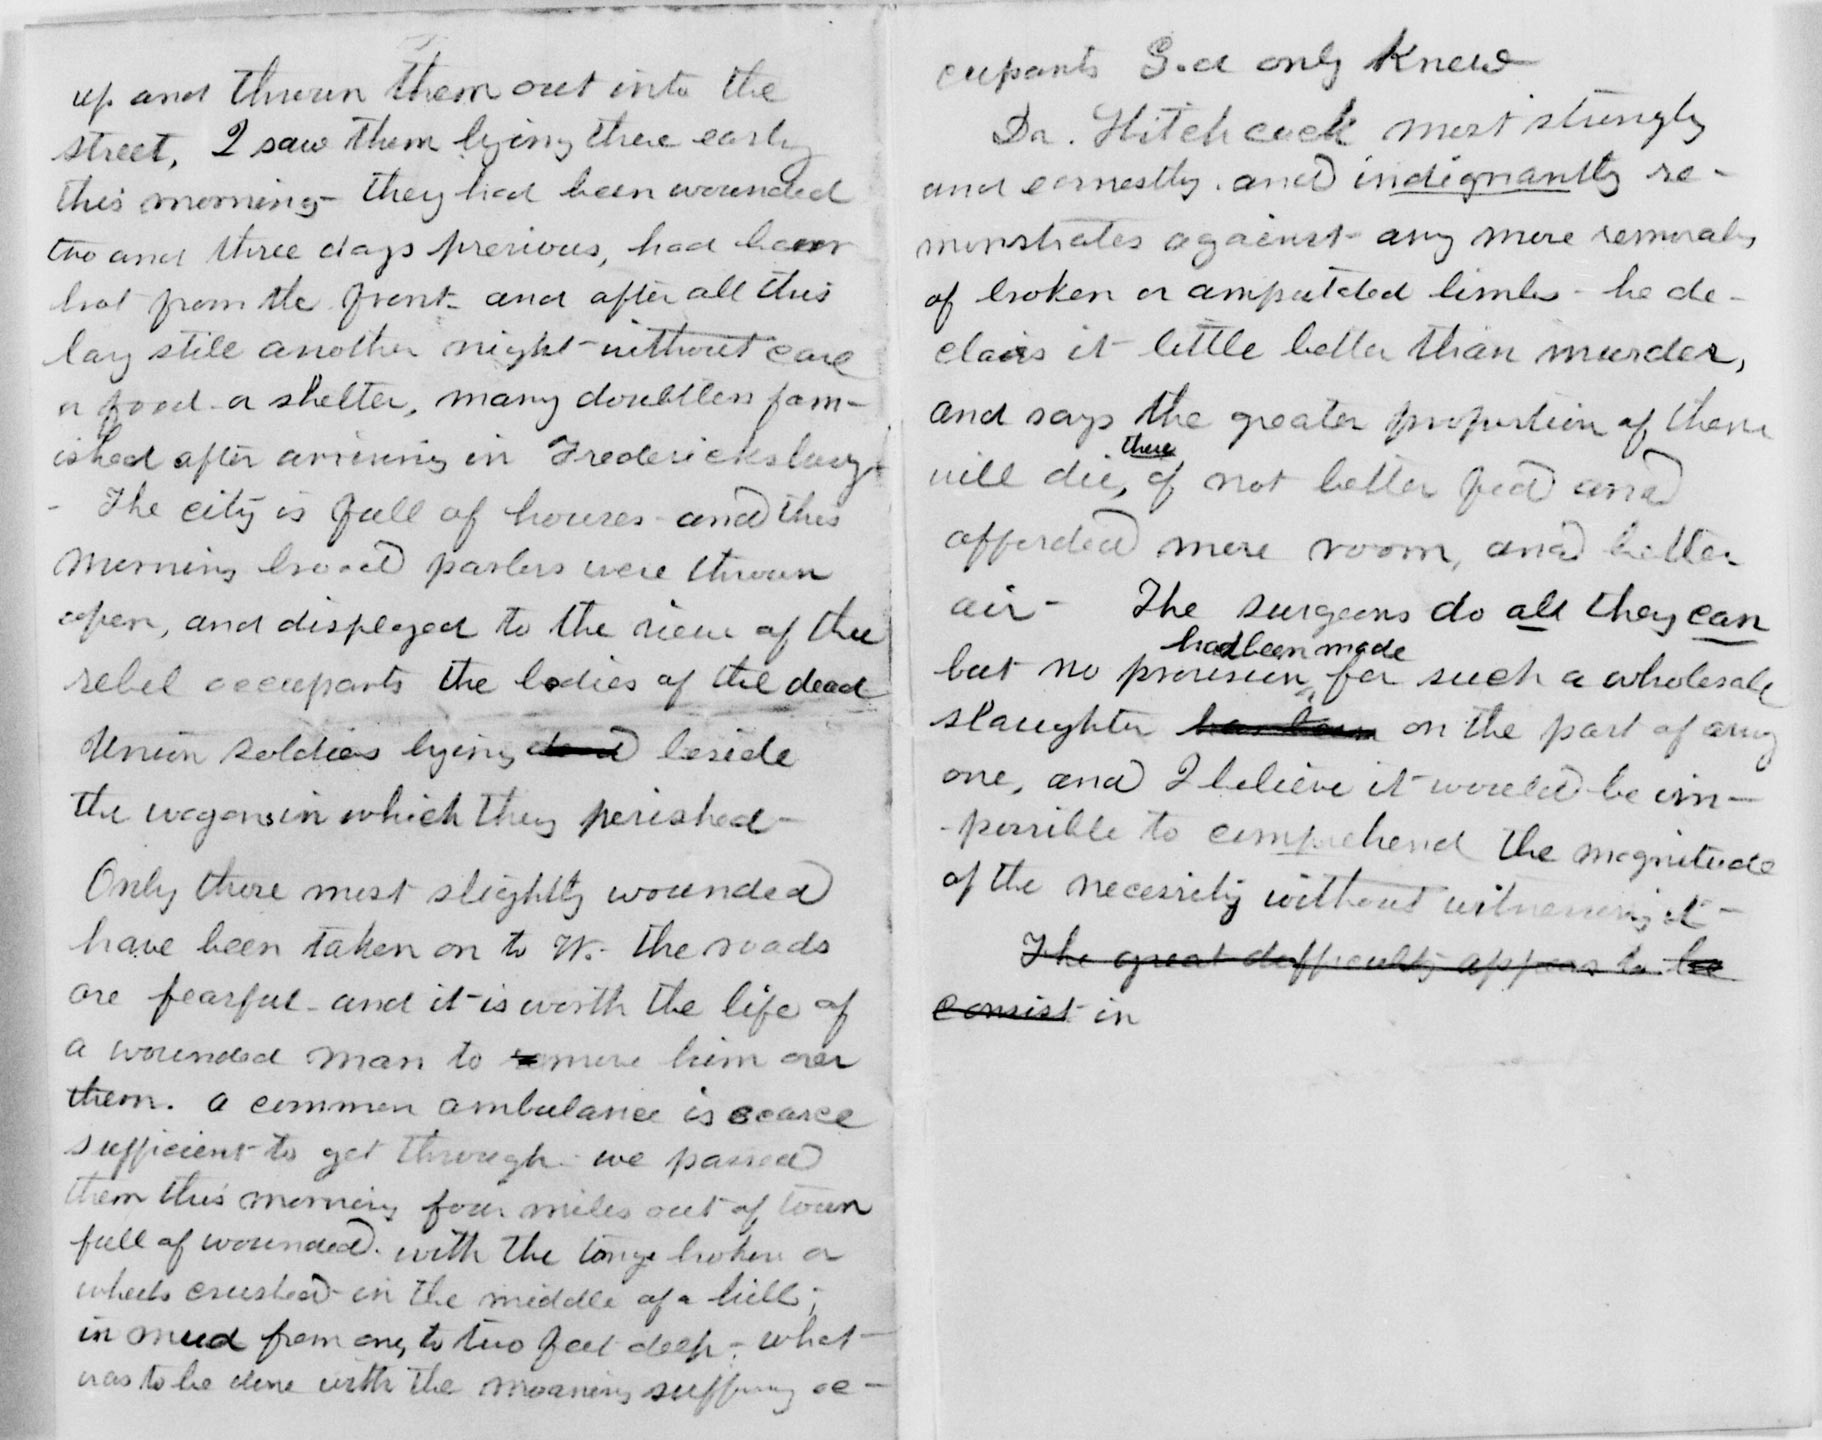 up and thrown them out into the
street, I saw them lying there early
this morning - they had been wounded
two and three days previous, had been
brot from the front - and after all this
lay still another night - without care
or food - or shelter, many doubtless fam-
ished after arriving in Fredericksburg
- The city is full of houses - and this
morning broad parlors were thrown
open, and displayed to the view of the
rebel occupants the bodies of the dead
Union soldiers lying dead beside
the wagons in which they perished -
Only those most slightly wounded
have been taken on to W. - the roads
are fearful - and it is worth the life of
a wounded man to move him over
them. a common ambulance is scarce
sufficient to get through - we passed
them this morning four miles out of town
full of wounded. with the tonge broken or
wheels crushed - in the middle of a hill,
in mud from one to two feet deep - what
was to be done with the moaning suffering oc-
cupants God only knew
Dr. Hitchcock most strongly
and earnestly. and indignantly re-
monstrates against any more removals
of broken or amputated limbs - he de-
clairs it little better than murder,
and says the greater proportion of them
there
will die, if not better fed and
afforded more room, and better
air - The surgeons do all they can
had been made
but no provision for such a wholesale
slaughter has been on the part of any
one, and I believe it would be im-
-possible to comprehend the magnitude
of the necessity without witnessing it -
The great difficulty appears to be
consist in